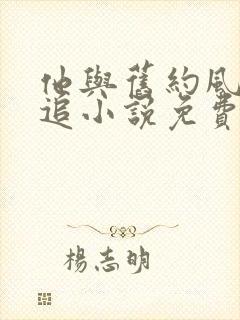 他與舊約風
追小說免費
楊志明